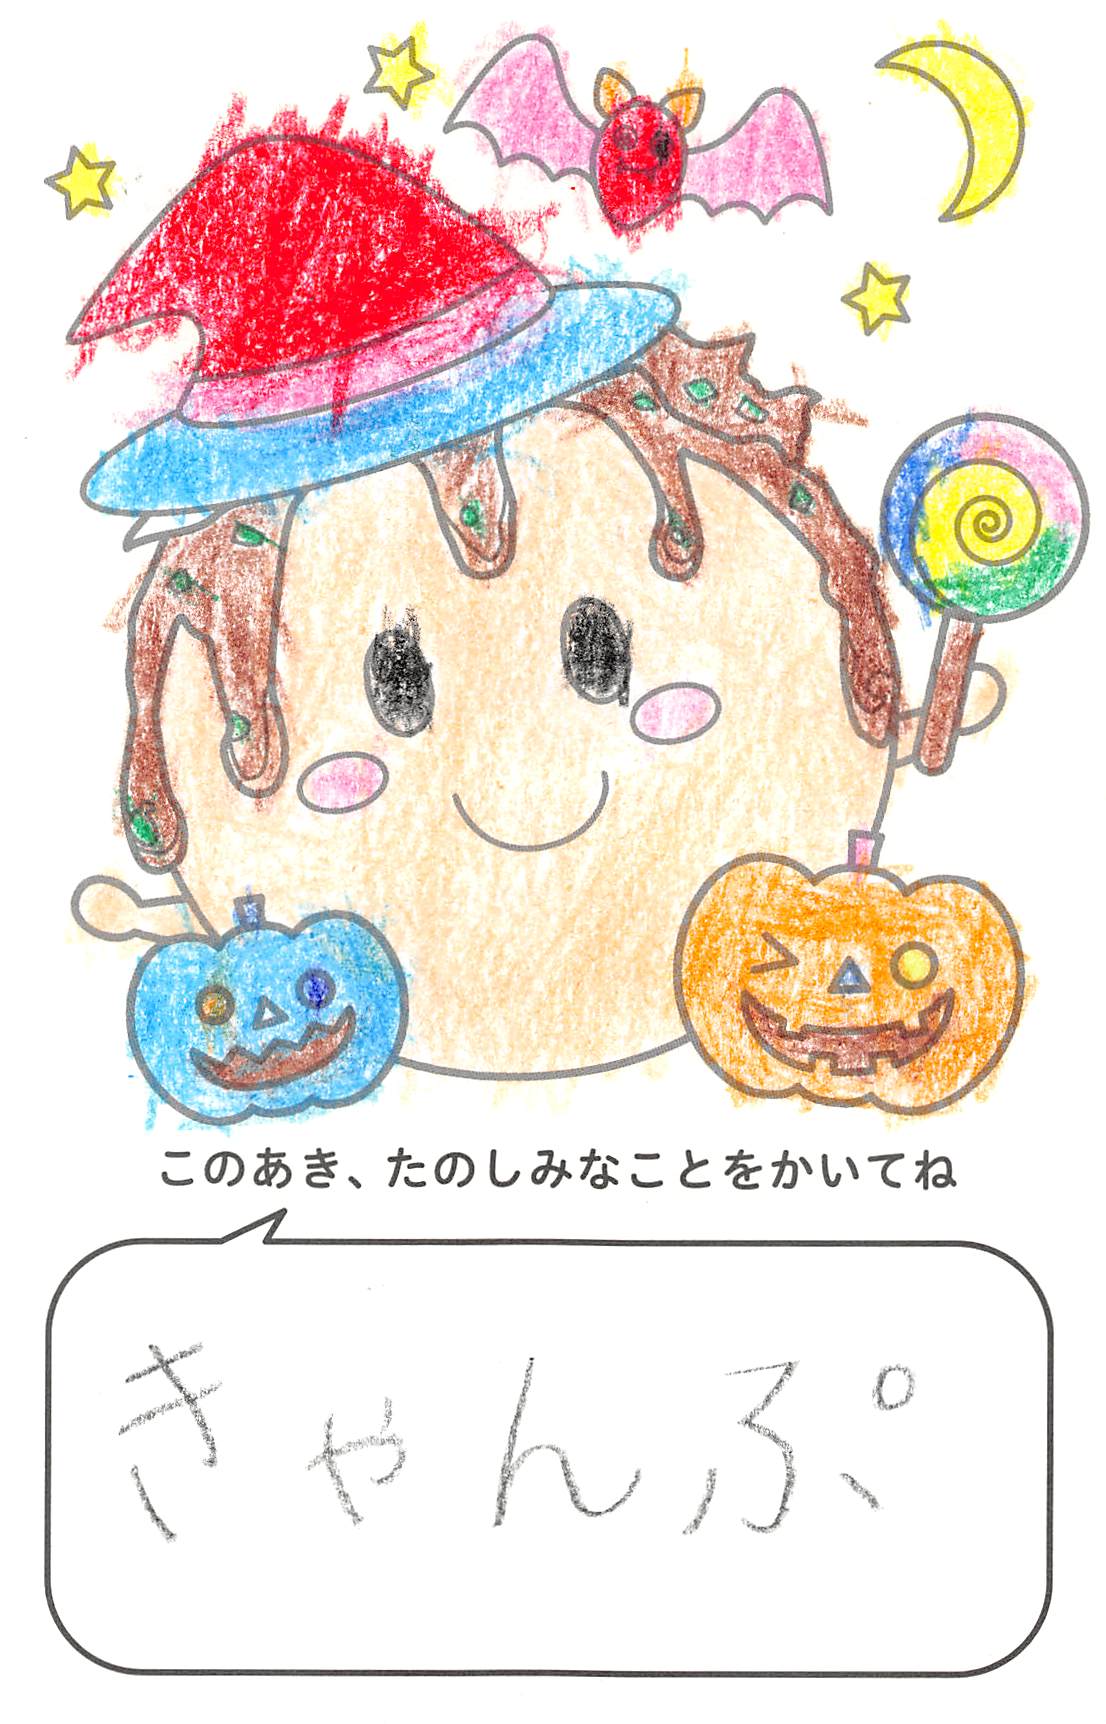 このあき、たのしみなことをかいてね
きゃんぷ